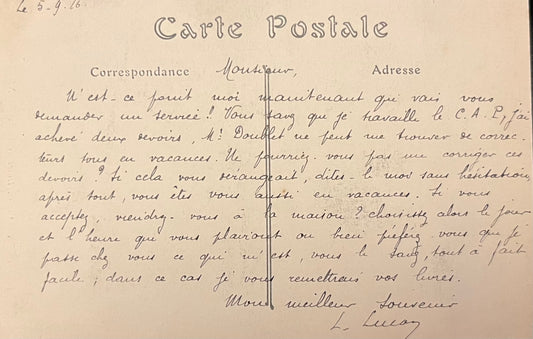 Le 5-9-16.
Carte Postale
Correspondance Monsieur, Adresse
N'est-ce point moi maintenant qui vais vous
demander un service? Vous savez que je travaille le C.A.P, j'ai
achevé deux devoirs, Mr Doublet ne peut me trouver de correc-
teurs tous en vacances. Ne pourriez-vous pas me corriger ces
devoirs? Si cela vous dérangeait, dites-le moi sans hésitation,
après tout, vous êtes vous aussi en vacances. Si vous
acceptez, viendrez-vous à la maison? choisissez alors le jour
et l'heure qui vous plairont ou bien préférez-vous que je
passe chez vous ce qui n'est, vous le savez, tout à fait
facile; dans ce cas je vous remettrais vos livres.
Mon meilleur souvenir
L.